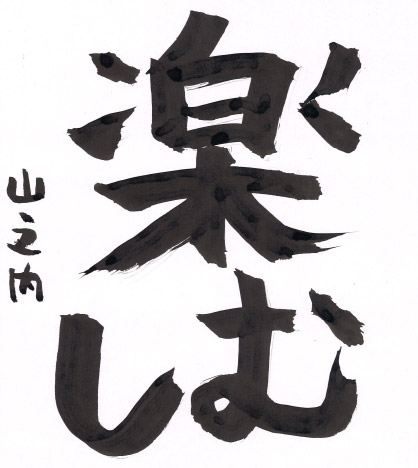 楽しむ
山之内